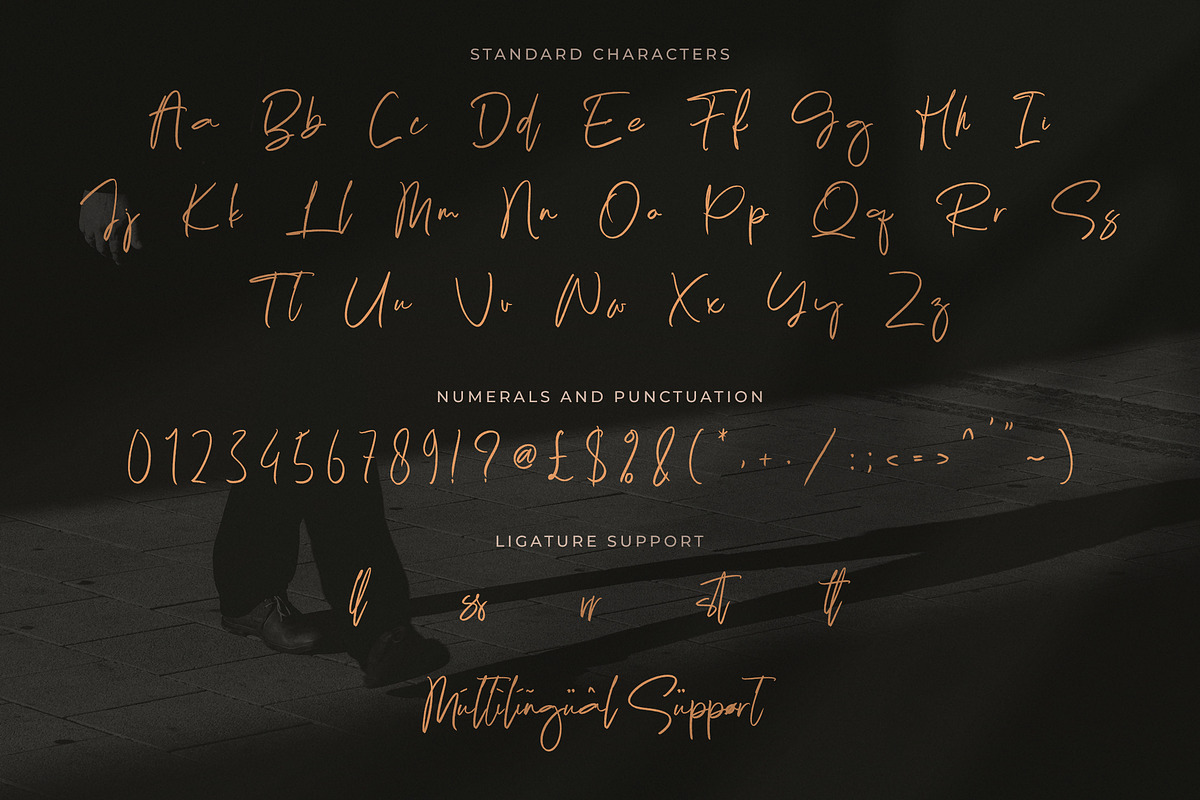 STANDARD CHARACTERS
Aa Bb Cc Dd Ee Ff Gg Hh Ii
Jj Kk Ll Mm Nn Oo Pp Qq Rr Ss
Tt Uu Vv Ww Xx Yy Zz
NUMERALS AND PUNCTUATION
0123456789!?@£$%&(*,+./:;<=>^'"~)
LIGATURE SUPPORT
ll ss rr st tt
Múltìlíñgüâl Süppørt